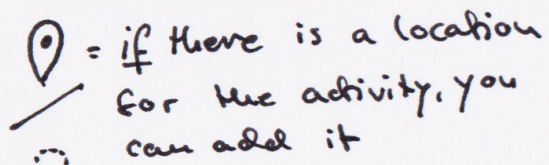 = if there is a location
for the activity, you
can add it